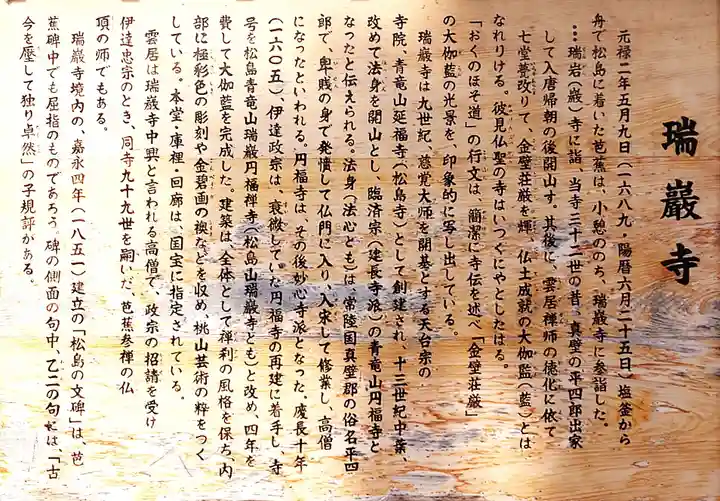 瑞巖寺
元禄二年五月九日(一六八九・陽暦六月二十五日)塩釜から
舟で松島に着いた芭蕉は、小憩ののち、瑞巌寺に参詣した。
…瑞岩(巌)寺に詣、当寺三十二世の昔、真壁の平四郎出家
して入唐帰朝の後開山す。其後に、雲居禅師の徳化に依て
七堂甍改りて、金壁荘厳光を輝、仏土成就の大伽監(藍)とは
なれりける。彼見仏聖の寺はいづくにやとしたはる。
「おくのほそ道」の行文は、簡潔に寺伝を述べ「金壁荘厳」
の大伽藍の光景を、印象的に写し出している。
瑞巌寺は九世紀、慈覚大師を開基とする天台宗の
寺院、青竜山延福寺(松島寺)として創建され、十三世紀中葉、
改めて法身を開山とし、臨済宗(建長寺派)の青竜山円福寺と
なったと伝えられる。法身(法心とも)は、常陸国真壁郡の俗名平四
郎で、卑賎の身で発憤して仏門に入り、入宋して修業し、高僧
になったといわれる。円福寺は、その後妙心寺派となった。慶長十年
(一六〇五)、伊達政宗は、衰微していた円福寺の再建に着手し、寺
号を松島青竜山瑞巌円福禅寺(松島山瑞巌寺とも)と改め、四年を
費して大伽藍を完成した。建築は、全体として禅刹の風格を保ち、内
部に極彩色の彫刻や金碧画の襖などを収め、桃山芸術の粋をつく
している。本堂・庫裡・回廊は、国宝に指定されている。
雲居は瑞巌寺中興と言われる高僧で、政宗の招請を受け
伊達忠宗のとき、同寺九十九世を嗣いだ、芭蕉参禅の仏
頂の師でもある。
瑞巌寺境内の、嘉永四年(一八五一)建立の「松島の文碑」は、芭
蕉碑中でも屈指のものであろう。碑の側面の句中、乙二の句には、「古
今を壓して独り卓然」の子規評がある。